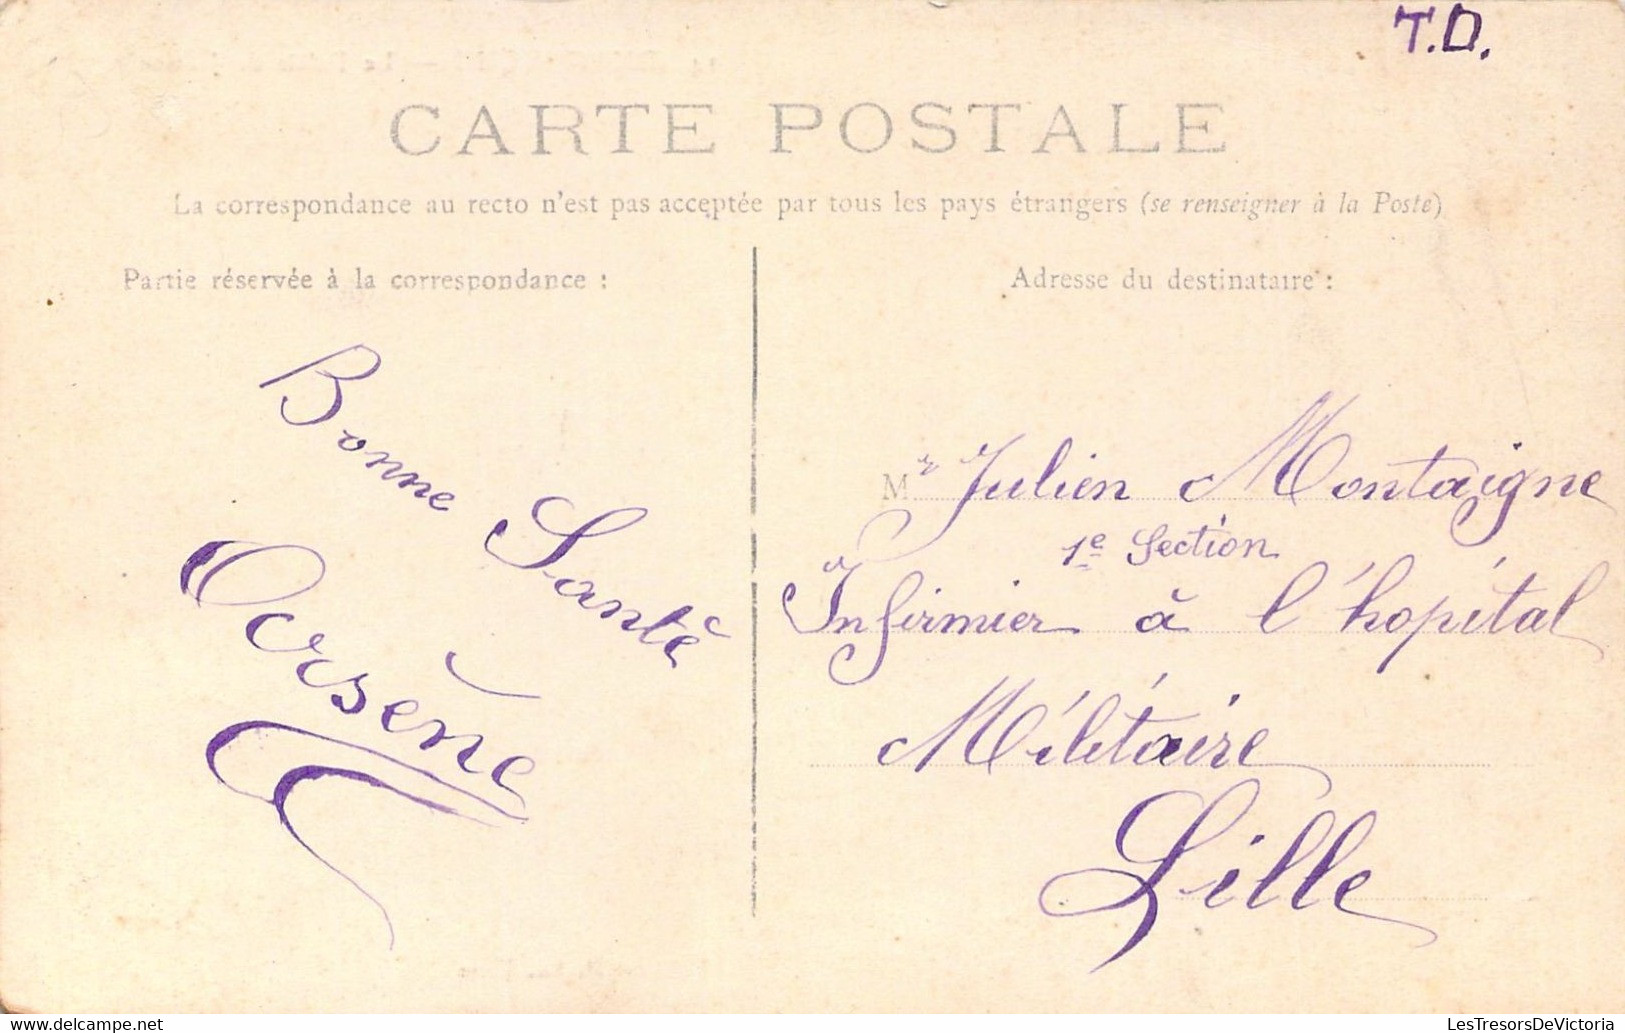 T.D.
CARTE POSTALE
La correspondance au recto n'est pas acceptée par tous les pays étrangers (se renseigner à la Poste)
Partie réservée à la correspondance :
Bonne Santé
Arsène
Adresse du destinataire :
Mr Julien Montaigne
1e Section
Infirmier à l'hopital
Militaire
Lille
LesTresorsDeVictoria